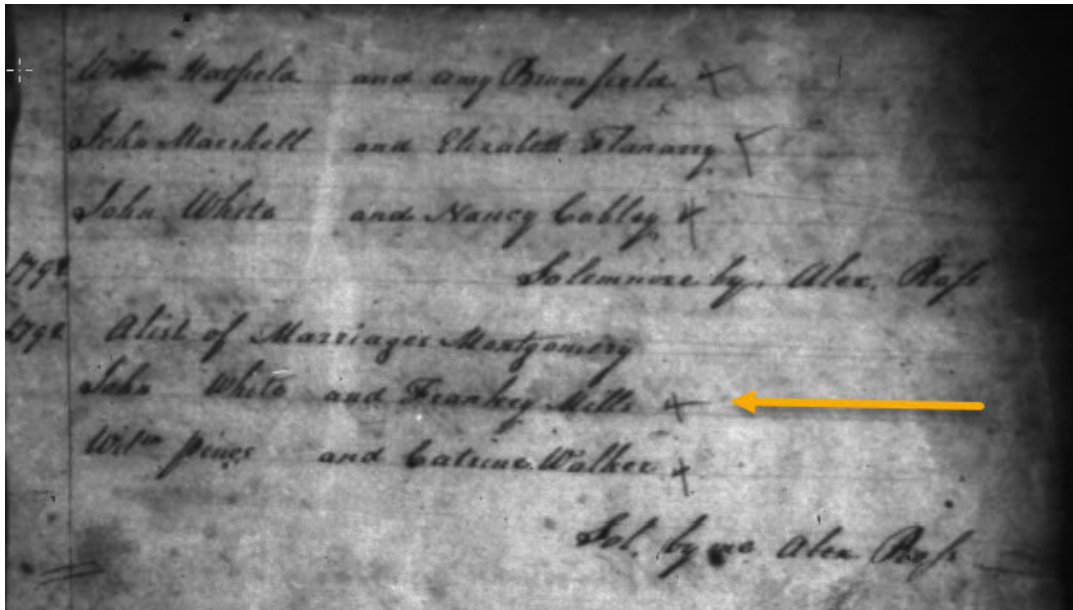 Willm Hatfield and Amy Brumfield
John Marshell and Elizabeth Flanary
John White and Nancy Cobley
1792 Solemnize by Alex. Ross
1792 A list of Marriages Montgomery
John White and Frankey Mills
Willm pines and Catrine Walker
Sol. by me Alex Ross